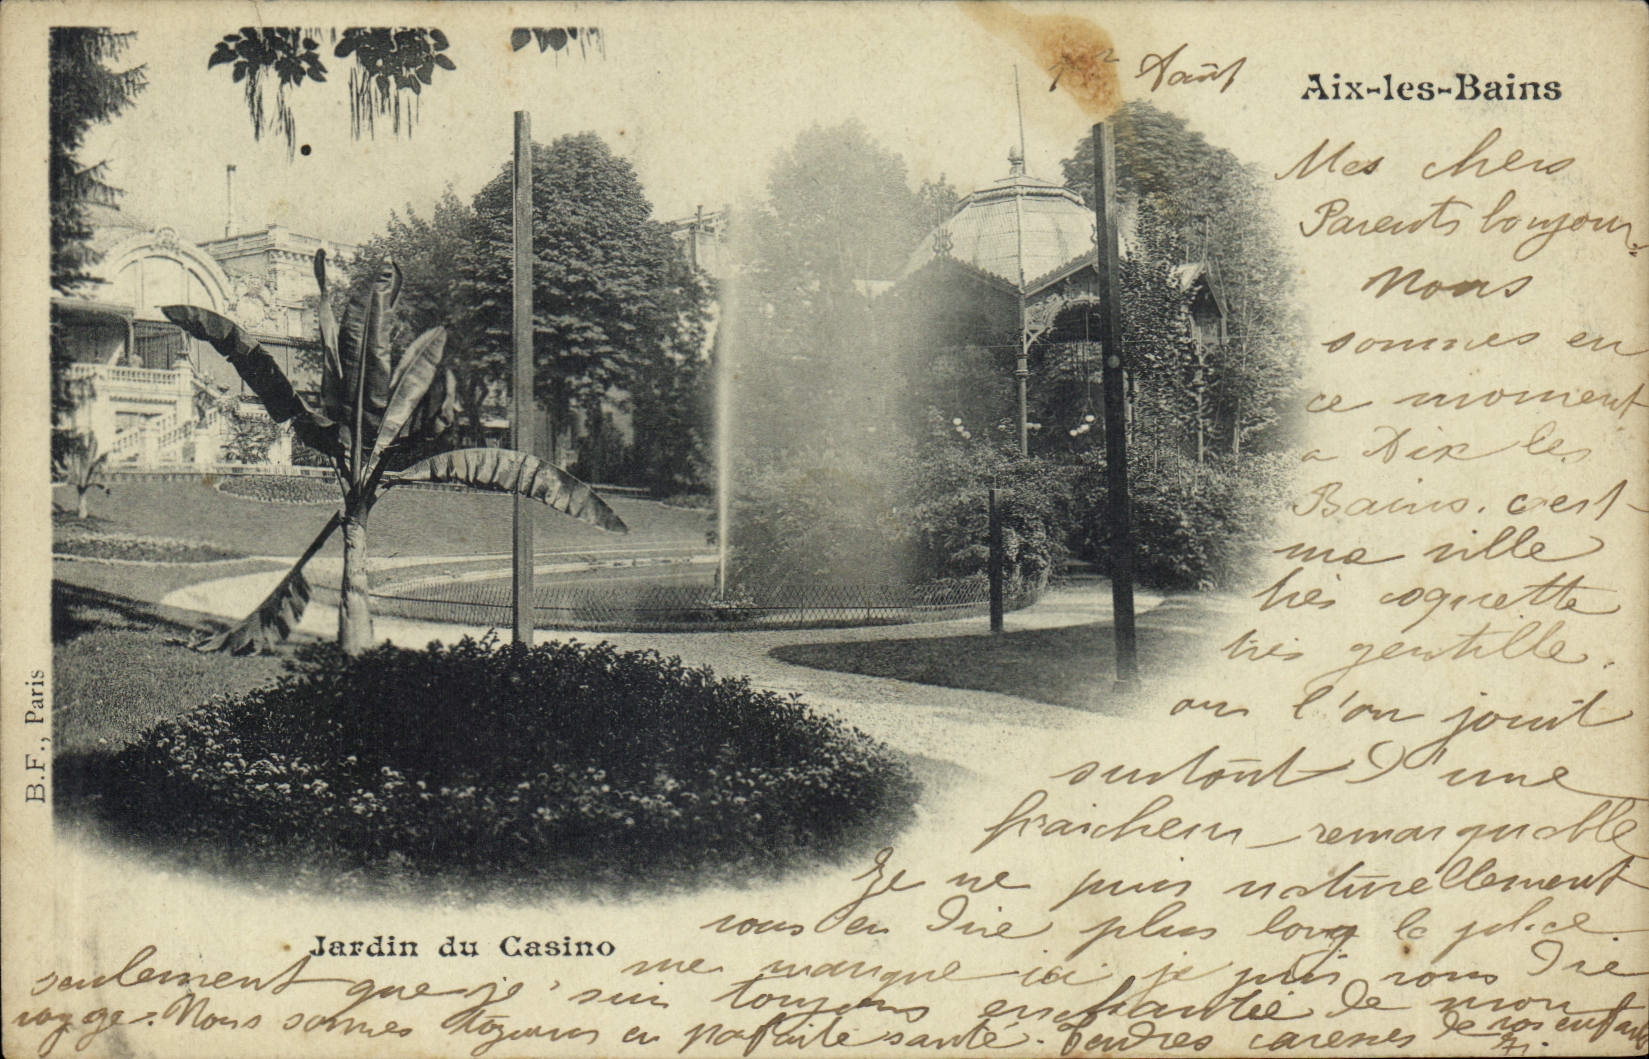 1er Août
Aix-les-Bains
Mes chers
Parents bonjour.
Nous
sommes en
ce moment
a Aix les
Bains. c'est
une ville
très coquette
très gentille.
ou l'on jouit
surtout d'une
fraicheur remarquable
Je ne puis naturellement
vous en dire plus long la place
me manque ici je puis vous dire
seulement que je suis toujours enchantée de mon
voyage. Nous sommes toujours en parfaite santé. Tendres caresses de vos enfants
Jardin du Casino
B.F., Paris